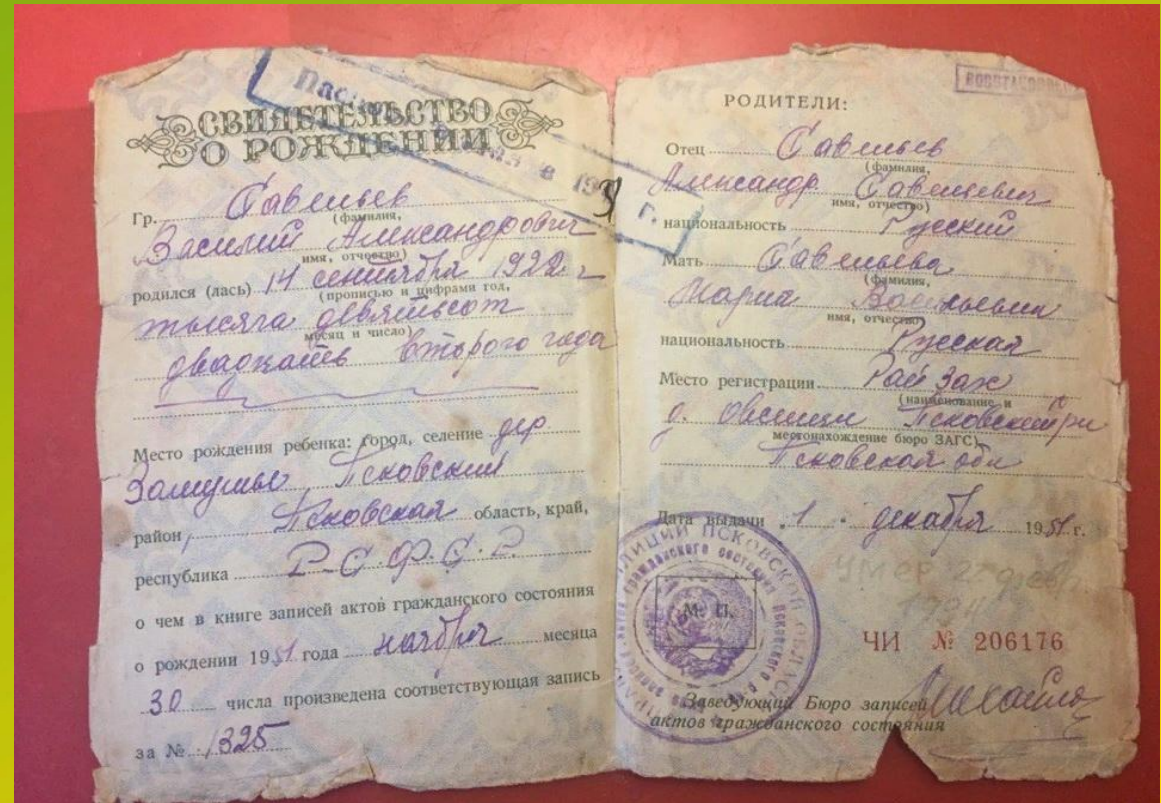 СВИДЕТЕЛЬСТВО
О РОЖДЕНИИ
Гр. Савельев
(фамилия,
Василий Александрович
имя, отчество)
родился (лась) 14 сентября 1922 г
(прописью и цифрами год,
тысяча девятьсот
месяц и число)
двадцать второго года
Место рождения ребенка: город, селение дер.
Псковский
район, Псковская область, край,
республика Р.С.Ф.С.Р.
о чем в книге записей актов гражданского состояния
о рождении 1951 года ноября месяца
30 числа произведена соответствующая запись
за № 1325
в 195 г.
РОДИТЕЛИ:
Отец Савельев
(фамилия,
Александр Савельевич
имя, отчество)
национальность Русский
Мать Савельева
(фамилия,
Мария Васильевна
имя, отчество)
национальность Русская
Место регистрации Рай Загс
(наименование и
д. Псковский р-н
местонахождение бюро ЗАГС)
Псковской обл
Дата выдачи 1 декабря 1951 г.
умер
М. П.
ЧИ № 206176
Заведующий Бюро записей
актов гражданского состояния